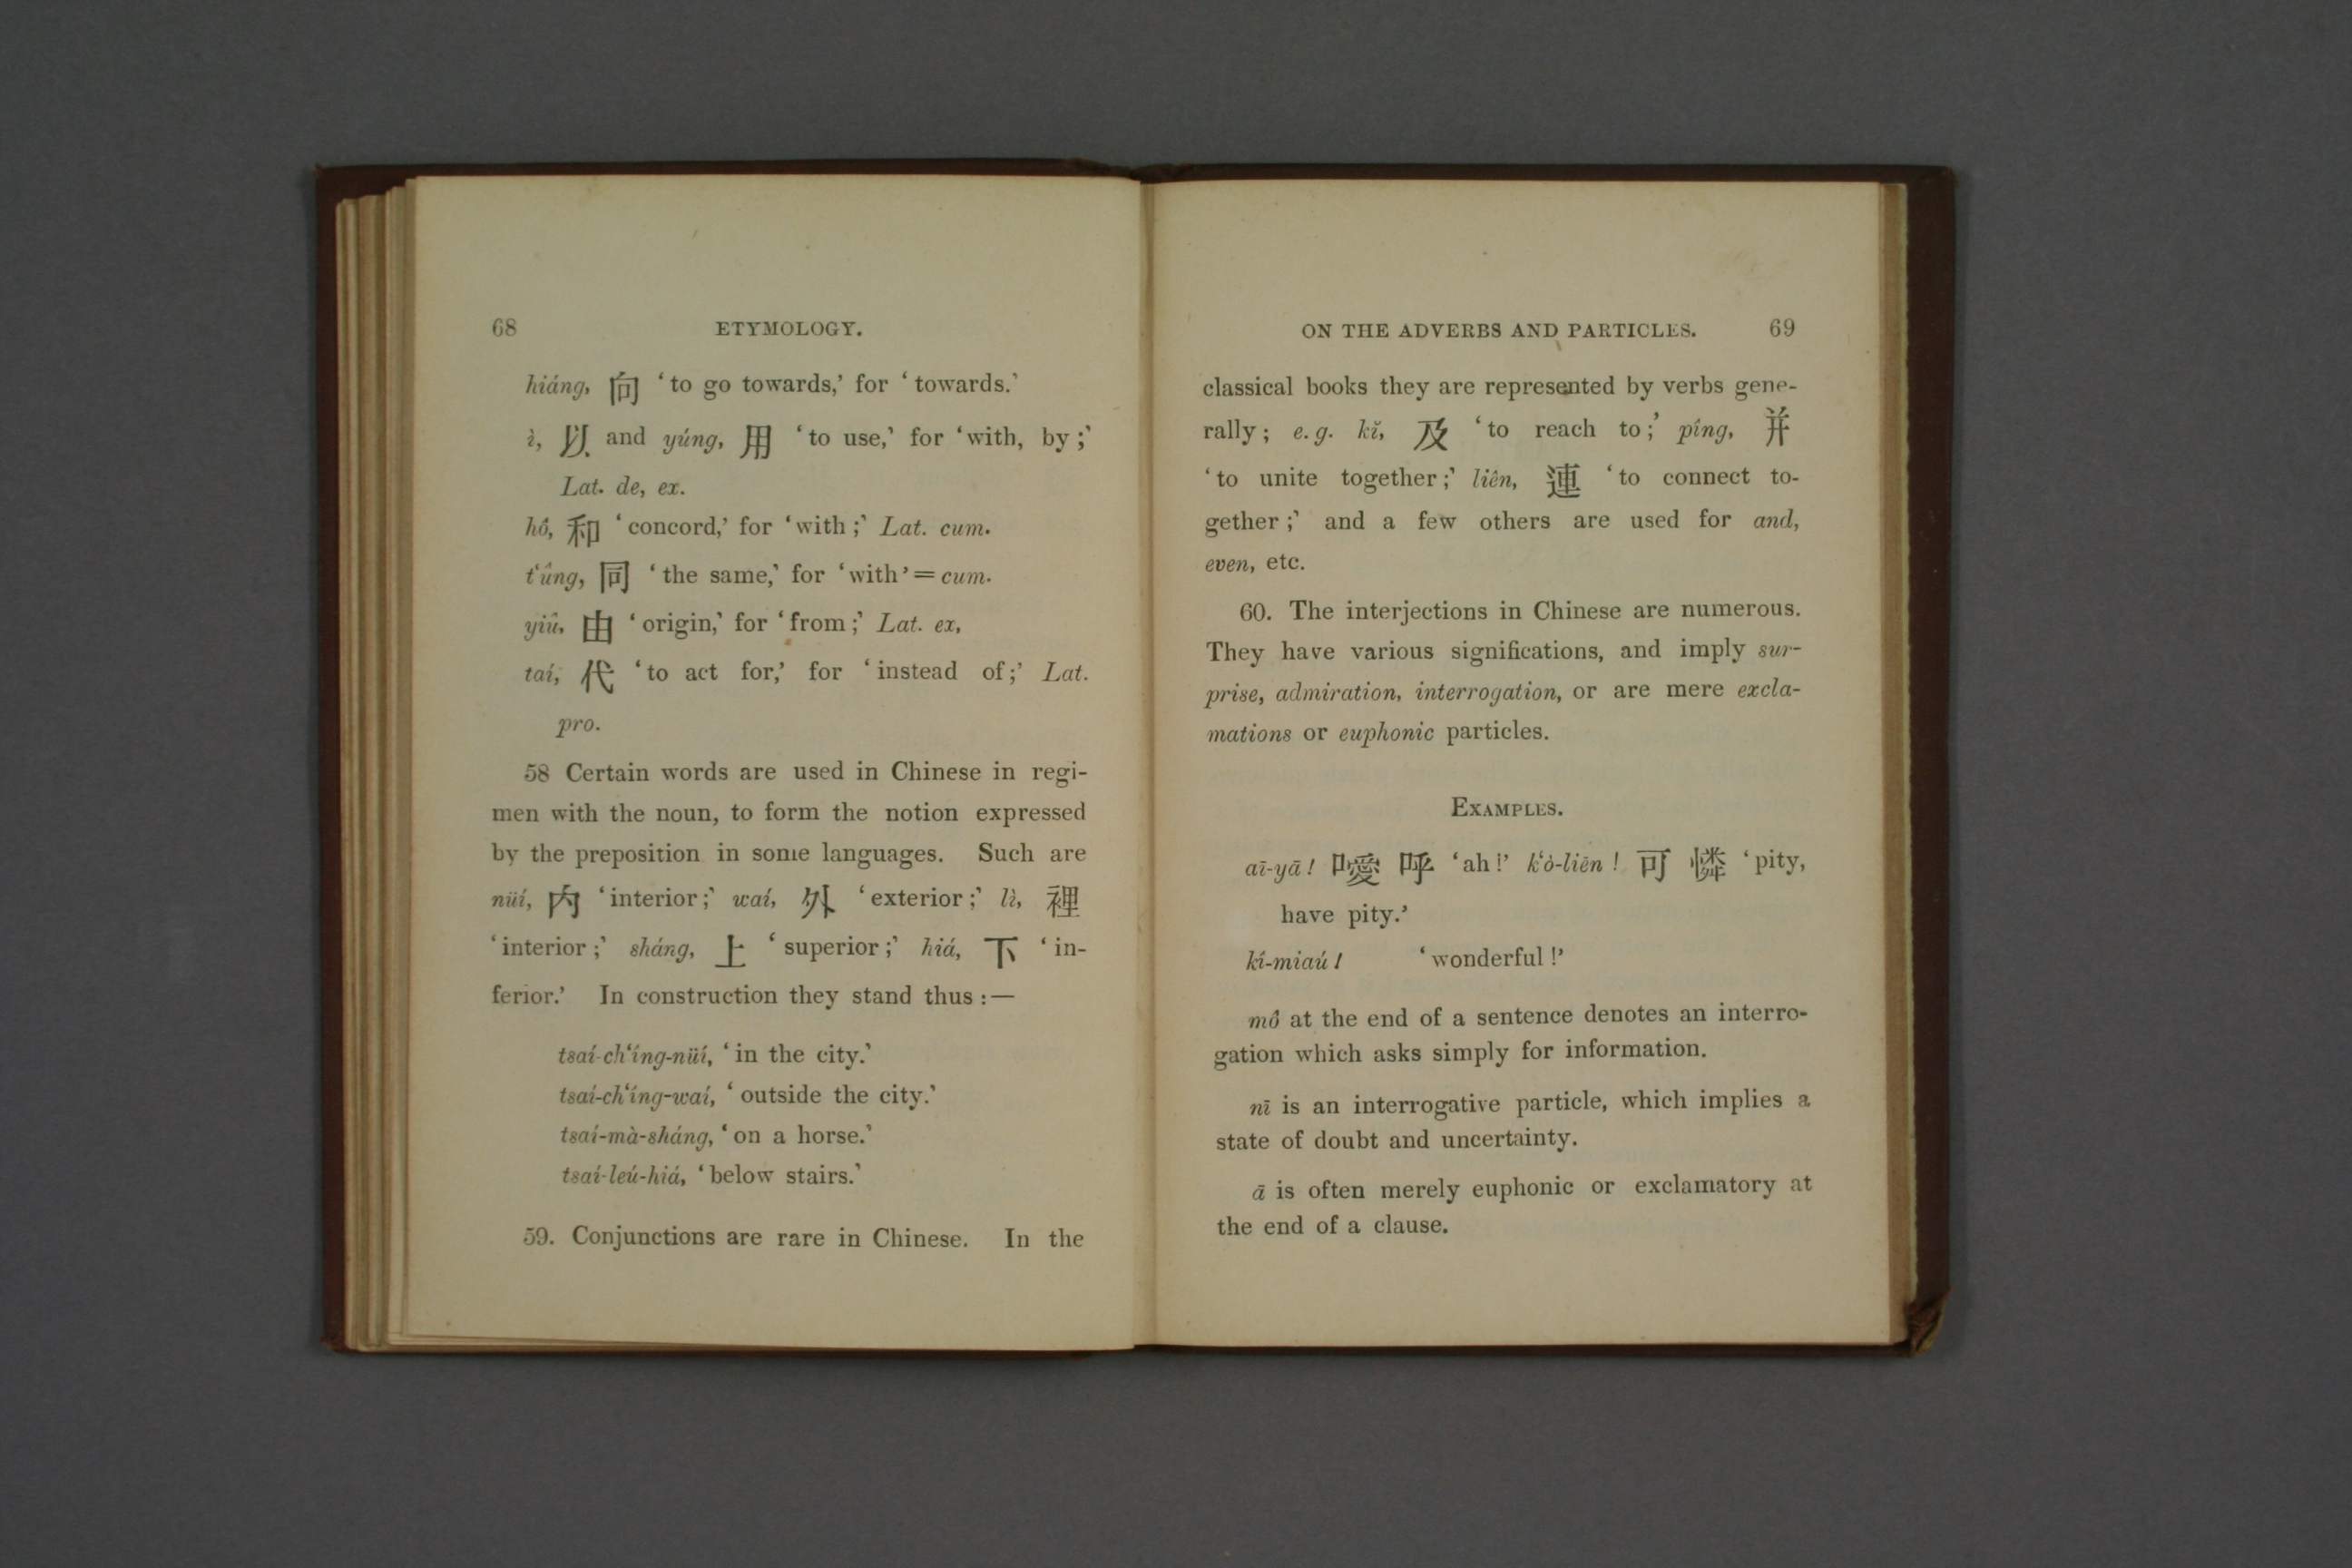 68 ETYMOLOGY.
hiáng, 向 ‘to go towards,’ for ‘towards.’
ì, 以 and yúng, 用 ‘to use,’ for ‘with, by;’
Lat. de, ex.
hô, 和 ‘concord,’ for ‘with;’ Lat. cum.
t‘ûng, 同 ‘the same,’ for ‘with’=cum.
yiû, 由 ‘origin,’ for ‘from;’ Lat. ex,
taí, 代 ‘to act for,’ for ‘instead of;’ Lat.
pro.
58 Certain words are used in Chinese in regi-
men with the noun, to form the notion expressed
by the preposition in some languages. Such are
nüí, 内 ‘interior;’ waí, 外 ‘exterior;’ lì, 裡
‘interior;’ sháng, 上 ‘superior;’ hiá, 下 ‘in-
ferior.’ In construction they stand thus:—
tsaí-ch‘íng-nüí, ‘in the city.’
tsaí-ch‘íng-waí, ‘outside the city.’
tsaí-mà-sháng, ‘on a horse.’
tsaí-leú-hiá, ‘below stairs.’
59. Conjunctions are rare in Chinese. In the
ON THE ADVERBS AND PARTICLES. 69
classical books they are represented by verbs gene-
rally; e.g. kĭ, 及 ‘to reach to;’ píng, 并
‘to unite together;’ liên, 連 ‘to connect to-
gether;’ and a few others are used for and,
even, etc.
60. The interjections in Chinese are numerous.
They have various significations, and imply sur-
prise, admiration, interrogation, or are mere excla-
mations or euphonic particles.
EXAMPLES.
aī-yā! 嗳 呼 ‘ah!’ k‘ò-liēn! 可 憐 ‘pity,
have pity.’
kí-miaú! ‘wonderful!’
mô at the end of a sentence denotes an interro-
gation which asks simply for information.
nī is an interrogative particle, which implies a
state of doubt and uncertainty.
ā is often merely euphonic or exclamatory at
the end of a clause.